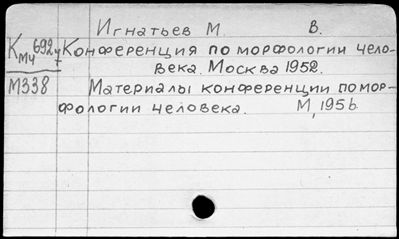 Игнатьев М. В.
КМУ 692у Конференция по морфологии чело-
века. Москва 1952.
М338 Материалы конференции по мор-
фологии человека. М, 1956.